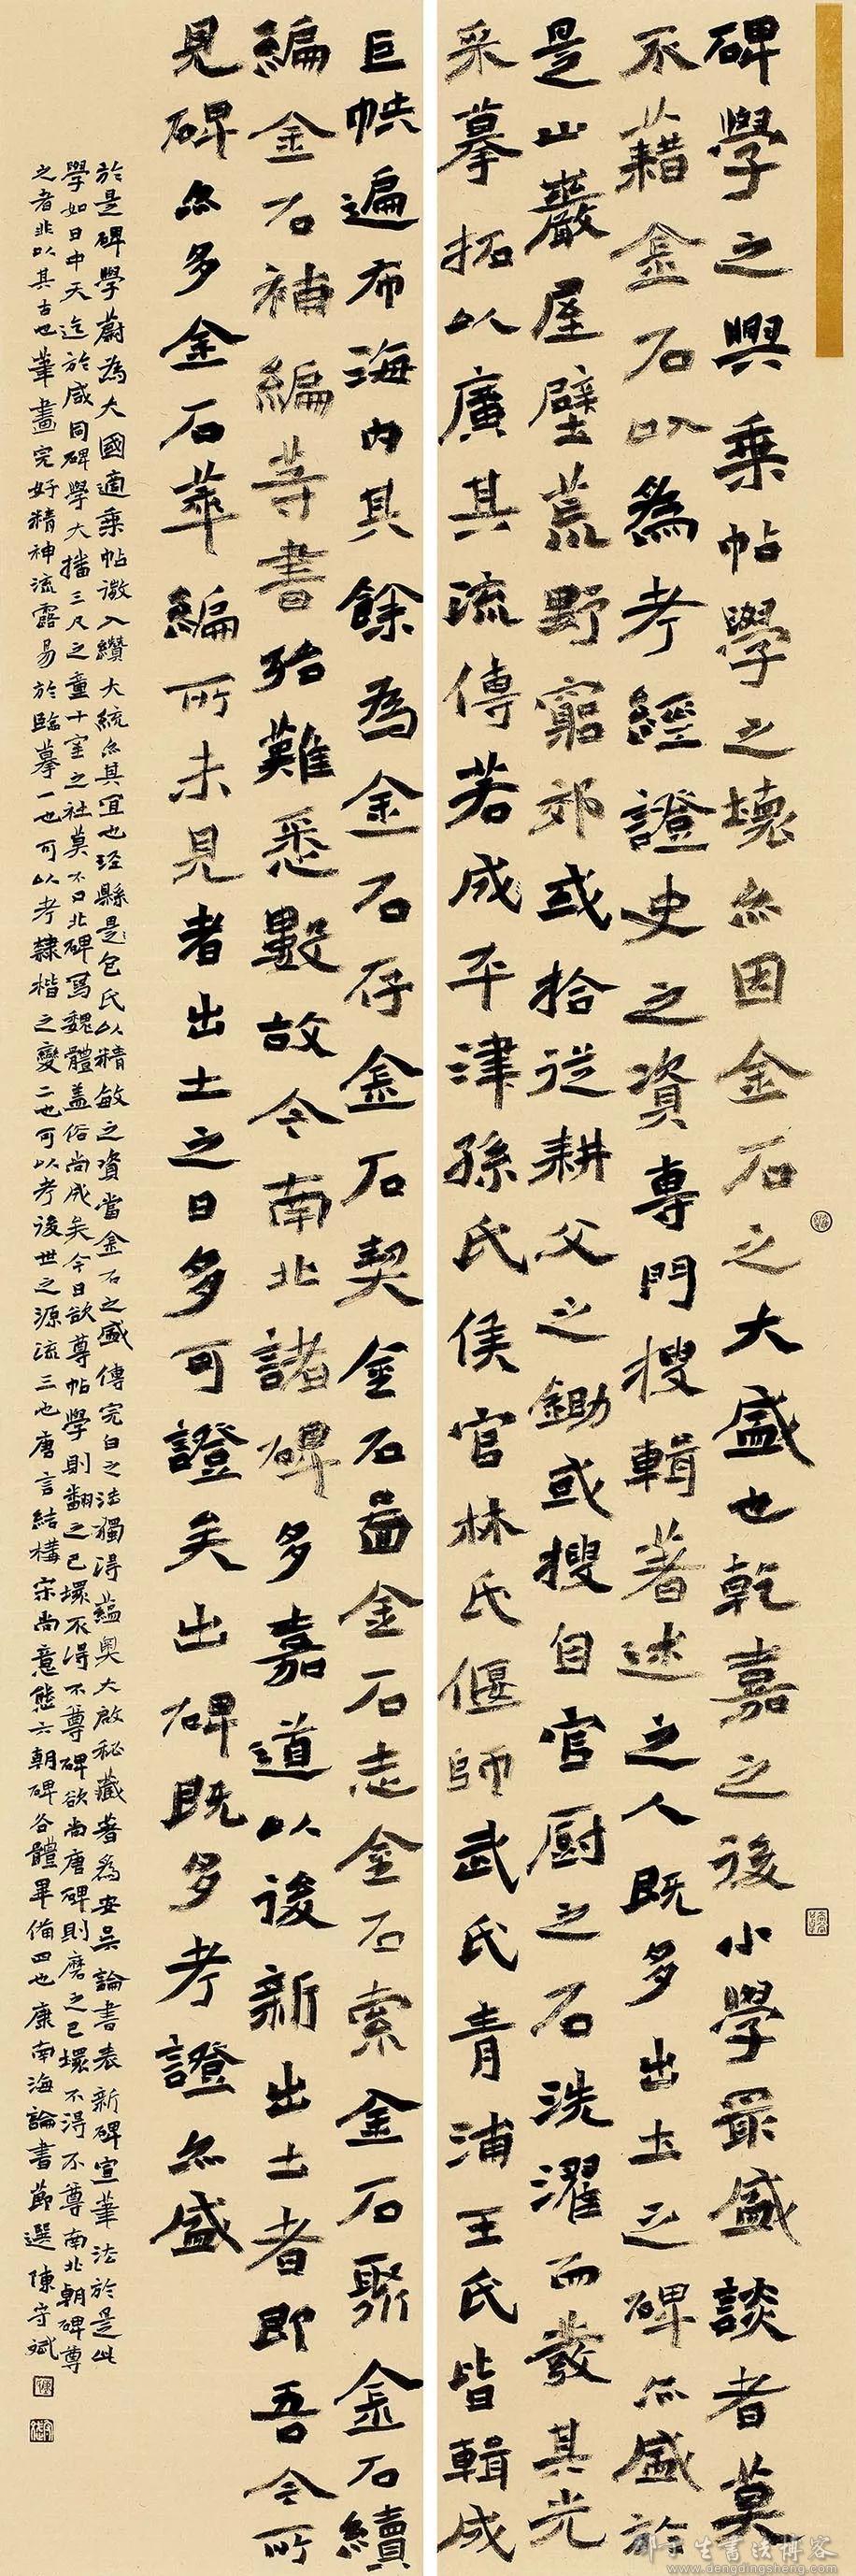 碑學之興乘帖學之壞亦因金石之大盛也乾嘉之後小學最盛談者莫
不藉金石以為考經證史之資專門搜輯著述之人既多出土之碑亦盛於
是山巖屋壁荒野窮郊或拾從耕父之鋤或搜自官厨之石洗濯而發其光
采摹拓以廣其流傳若成平津孫氏侯官林氏偃師武氏青浦王氏皆輯成
巨帙遍布海內其餘為金石存金石契金石圖金石志金石索金石聚金石續
編金石補編等書殆難悉數故今南北諸碑多嘉道以後新出土者即吾今所
見碑亦多金石萃編所未見者出土之日多可證矣出碑既多考證亦盛
於是碑學蔚為大國適乘帖微入纘大統亦其宜也涇縣是包氏以精敏之資當金石之盛傳完白之法獨得蘊奧大啟秘藏著為安吴論書表新碑宣筆法於是此
學如日中天迄於咸同碑學大播三尺之童十室之社莫不口北碑寫魏體盖俗尚成矣今日欲尊帖學則翻之已壞不得不尊碑欲尚唐碑則磨之已壞不得不尊南北朝碑尊
之者非以其古也筆畫完好精神流露易於臨摹一也可以考隸楷之變二也可以考後世之源流三也唐言結構宋尚意態六朝碑各體畢備四也康南海論書節選陳守斌
邓丁生書法博客
www.dengdingsheng.com